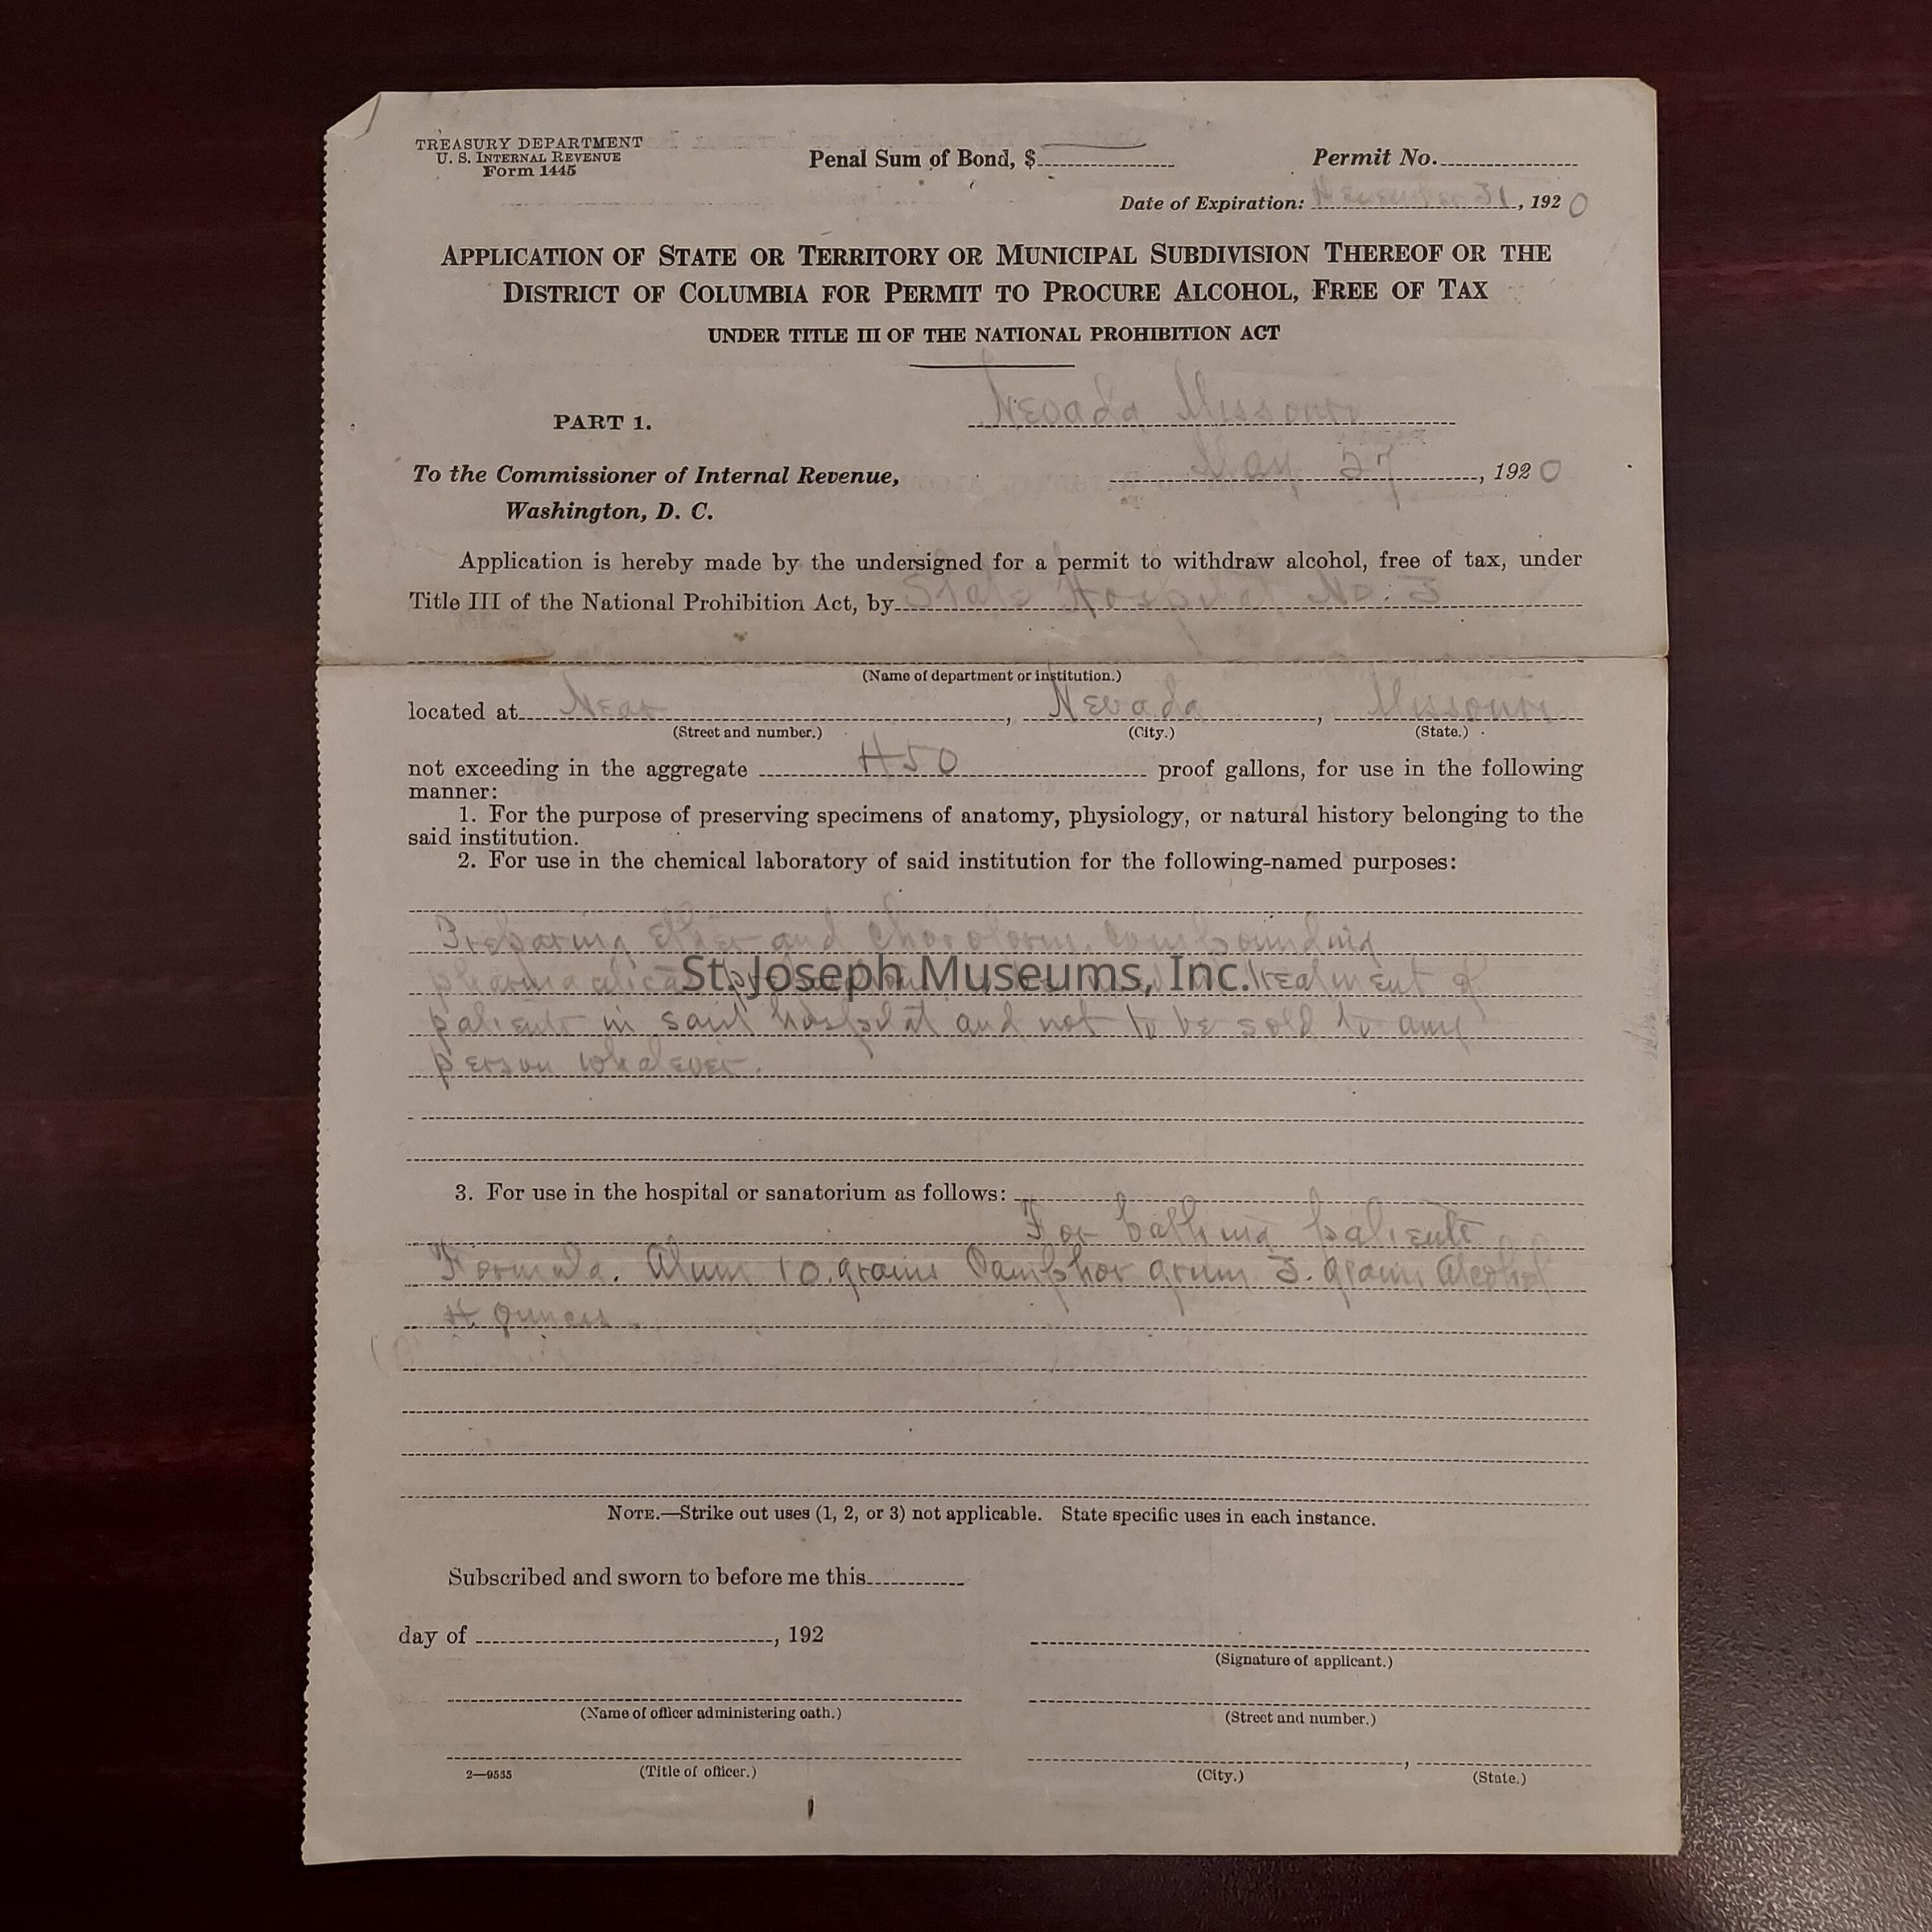 TREASURY DEPARTMENT
U. S. INTERNAL REVENUE
Form 1445
Penal Sum of Bond, $
Permit No.
Date of Expiration: 31, 1920
APPLICATION OF STATE OR TERRITORY OR MUNICIPAL SUBDIVISION THEREOF OR THE
DISTRICT OF COLUMBIA FOR PERMIT TO PROCURE ALCOHOL, FREE OF TAX
UNDER TITLE III OF THE NATIONAL PROHIBITION ACT
Nevada Missouri
PART 1.
May 27, 1920
To the Commissioner of Internal Revenue,
Washington, D. C.
Application is hereby made by the undersigned for a permit to withdraw alcohol, free of tax, under
Title III of the National Prohibition Act, by State Hospital No. 3
(Name of department or institution.)
located at Near, Nevada, Missouri
(Street and number.) (City.) (State.)
not exceeding in the aggregate 450 proof gallons, for use in the following
manner:
1. For the purpose of preserving specimens of anatomy, physiology, or natural history belonging to the
said institution.
2. For use in the chemical laboratory of said institution for the following-named purposes:
Preparing ether and compounding
St. Joseph Museums, Inc.
treatment of
patients in said hospital and not to be sold to any
person whatever.
3. For use in the hospital or sanatorium as follows:
For bathing patients
Formula. Alum 10. grains Camphor 3. grains Alcohol
4. Ounces.
NOTE.—Strike out uses (1, 2, or 3) not applicable. State specific uses in each instance.
Subscribed and sworn to before me this
day of , 192
(Signature of applicant.)
(Name of officer administering oath.)
(Street and number.)
2—9535
(Title of officer.)
(City.) , (State.)